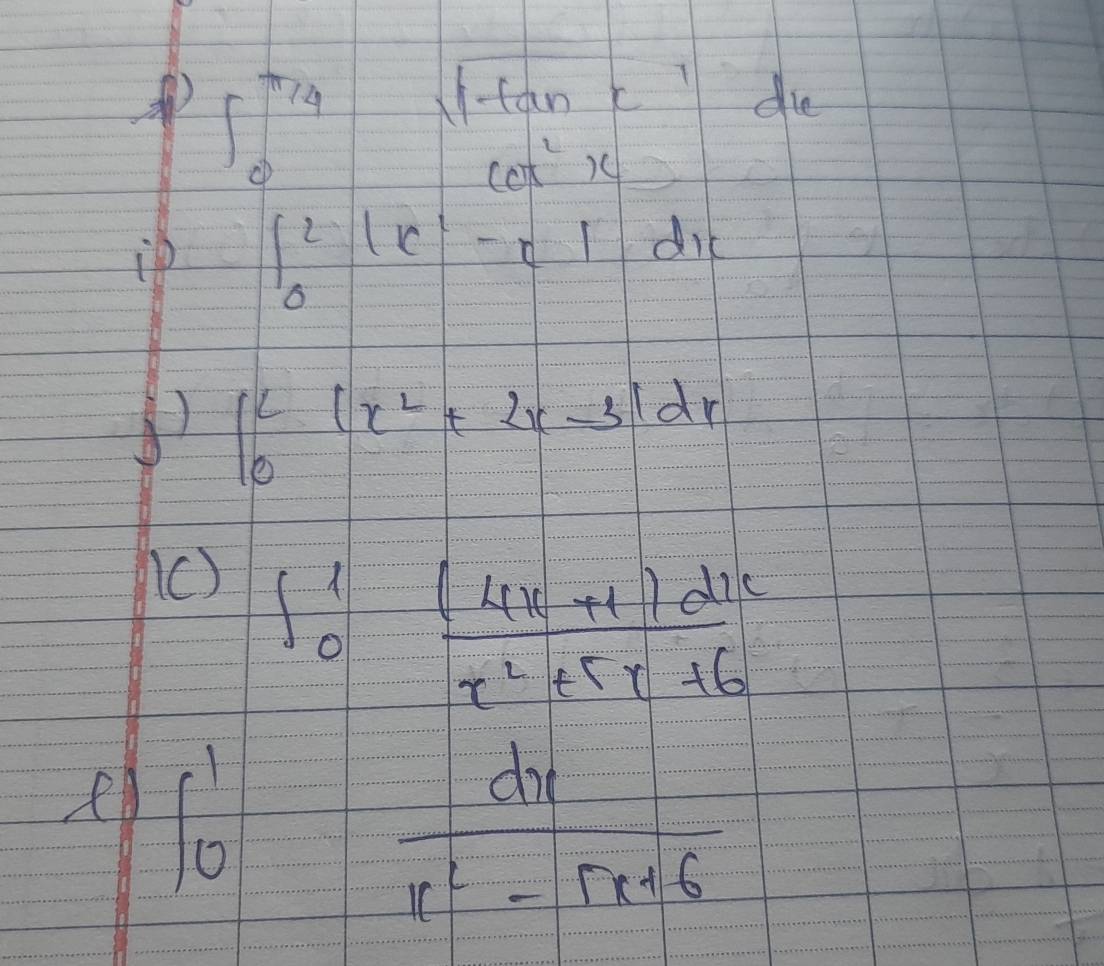 ∫₀^π/4 √(tan x) dx
cos² x
i) ∫₀² |x² - x| dx
j) ∫₀² |x² + 2x - 3| dx
k) ∫₀¹ (4x + 1) dx
x² + 5x + 6
l) ∫₀¹ dx
x² - 5x + 6